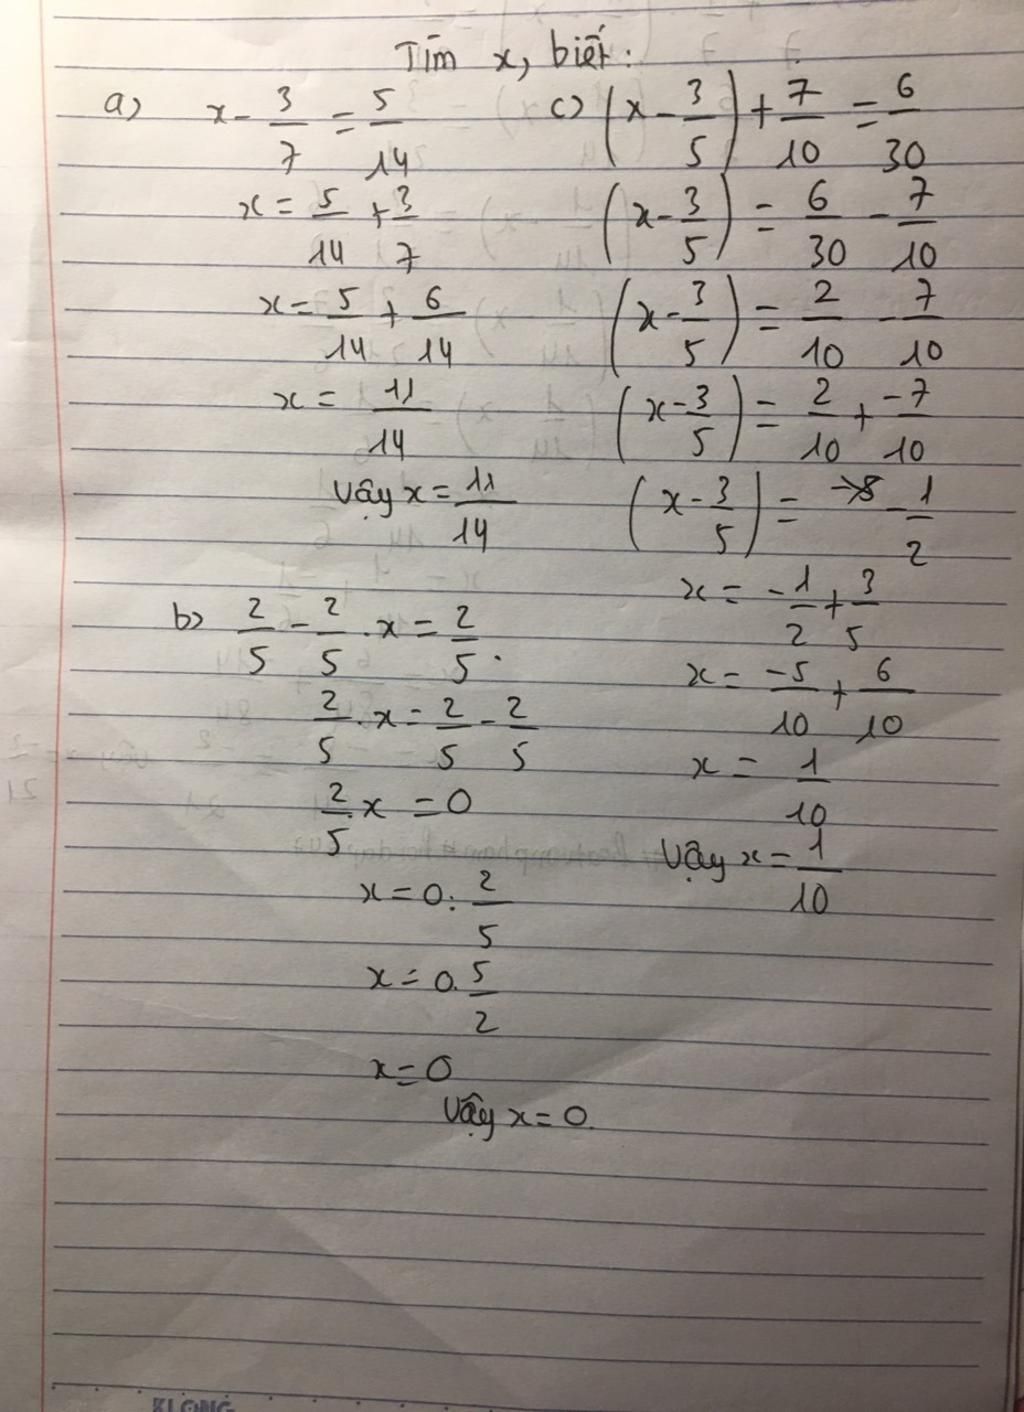 Tìm x, biết:
a) x - 3/7 = 5/14
x = 5/14 + 3/7
x = 5/14 + 6/14
x = 11/14
Vậy x = 11/14
b) 2/5 - 2/5 . x = 2/5.
2/5 . x = 2/5 - 2/5
2/5 . x = 0
x = 0 : 2/5
x = 0 . 5/2
x = 0
Vậy x = 0.
c) (x - 3/5) + 7/10 = 6/30
(x - 3/5) = 6/30 - 7/10
(x - 3/5) = 2/10 - 7/10
(x - 3/5) = 2/10 + -7/10
(x - 3/5) = -1/2
x = -1/2 + 3/5
x = -5/10 + 6/10
x = 1/10
Vậy x = 1/10
KLONG